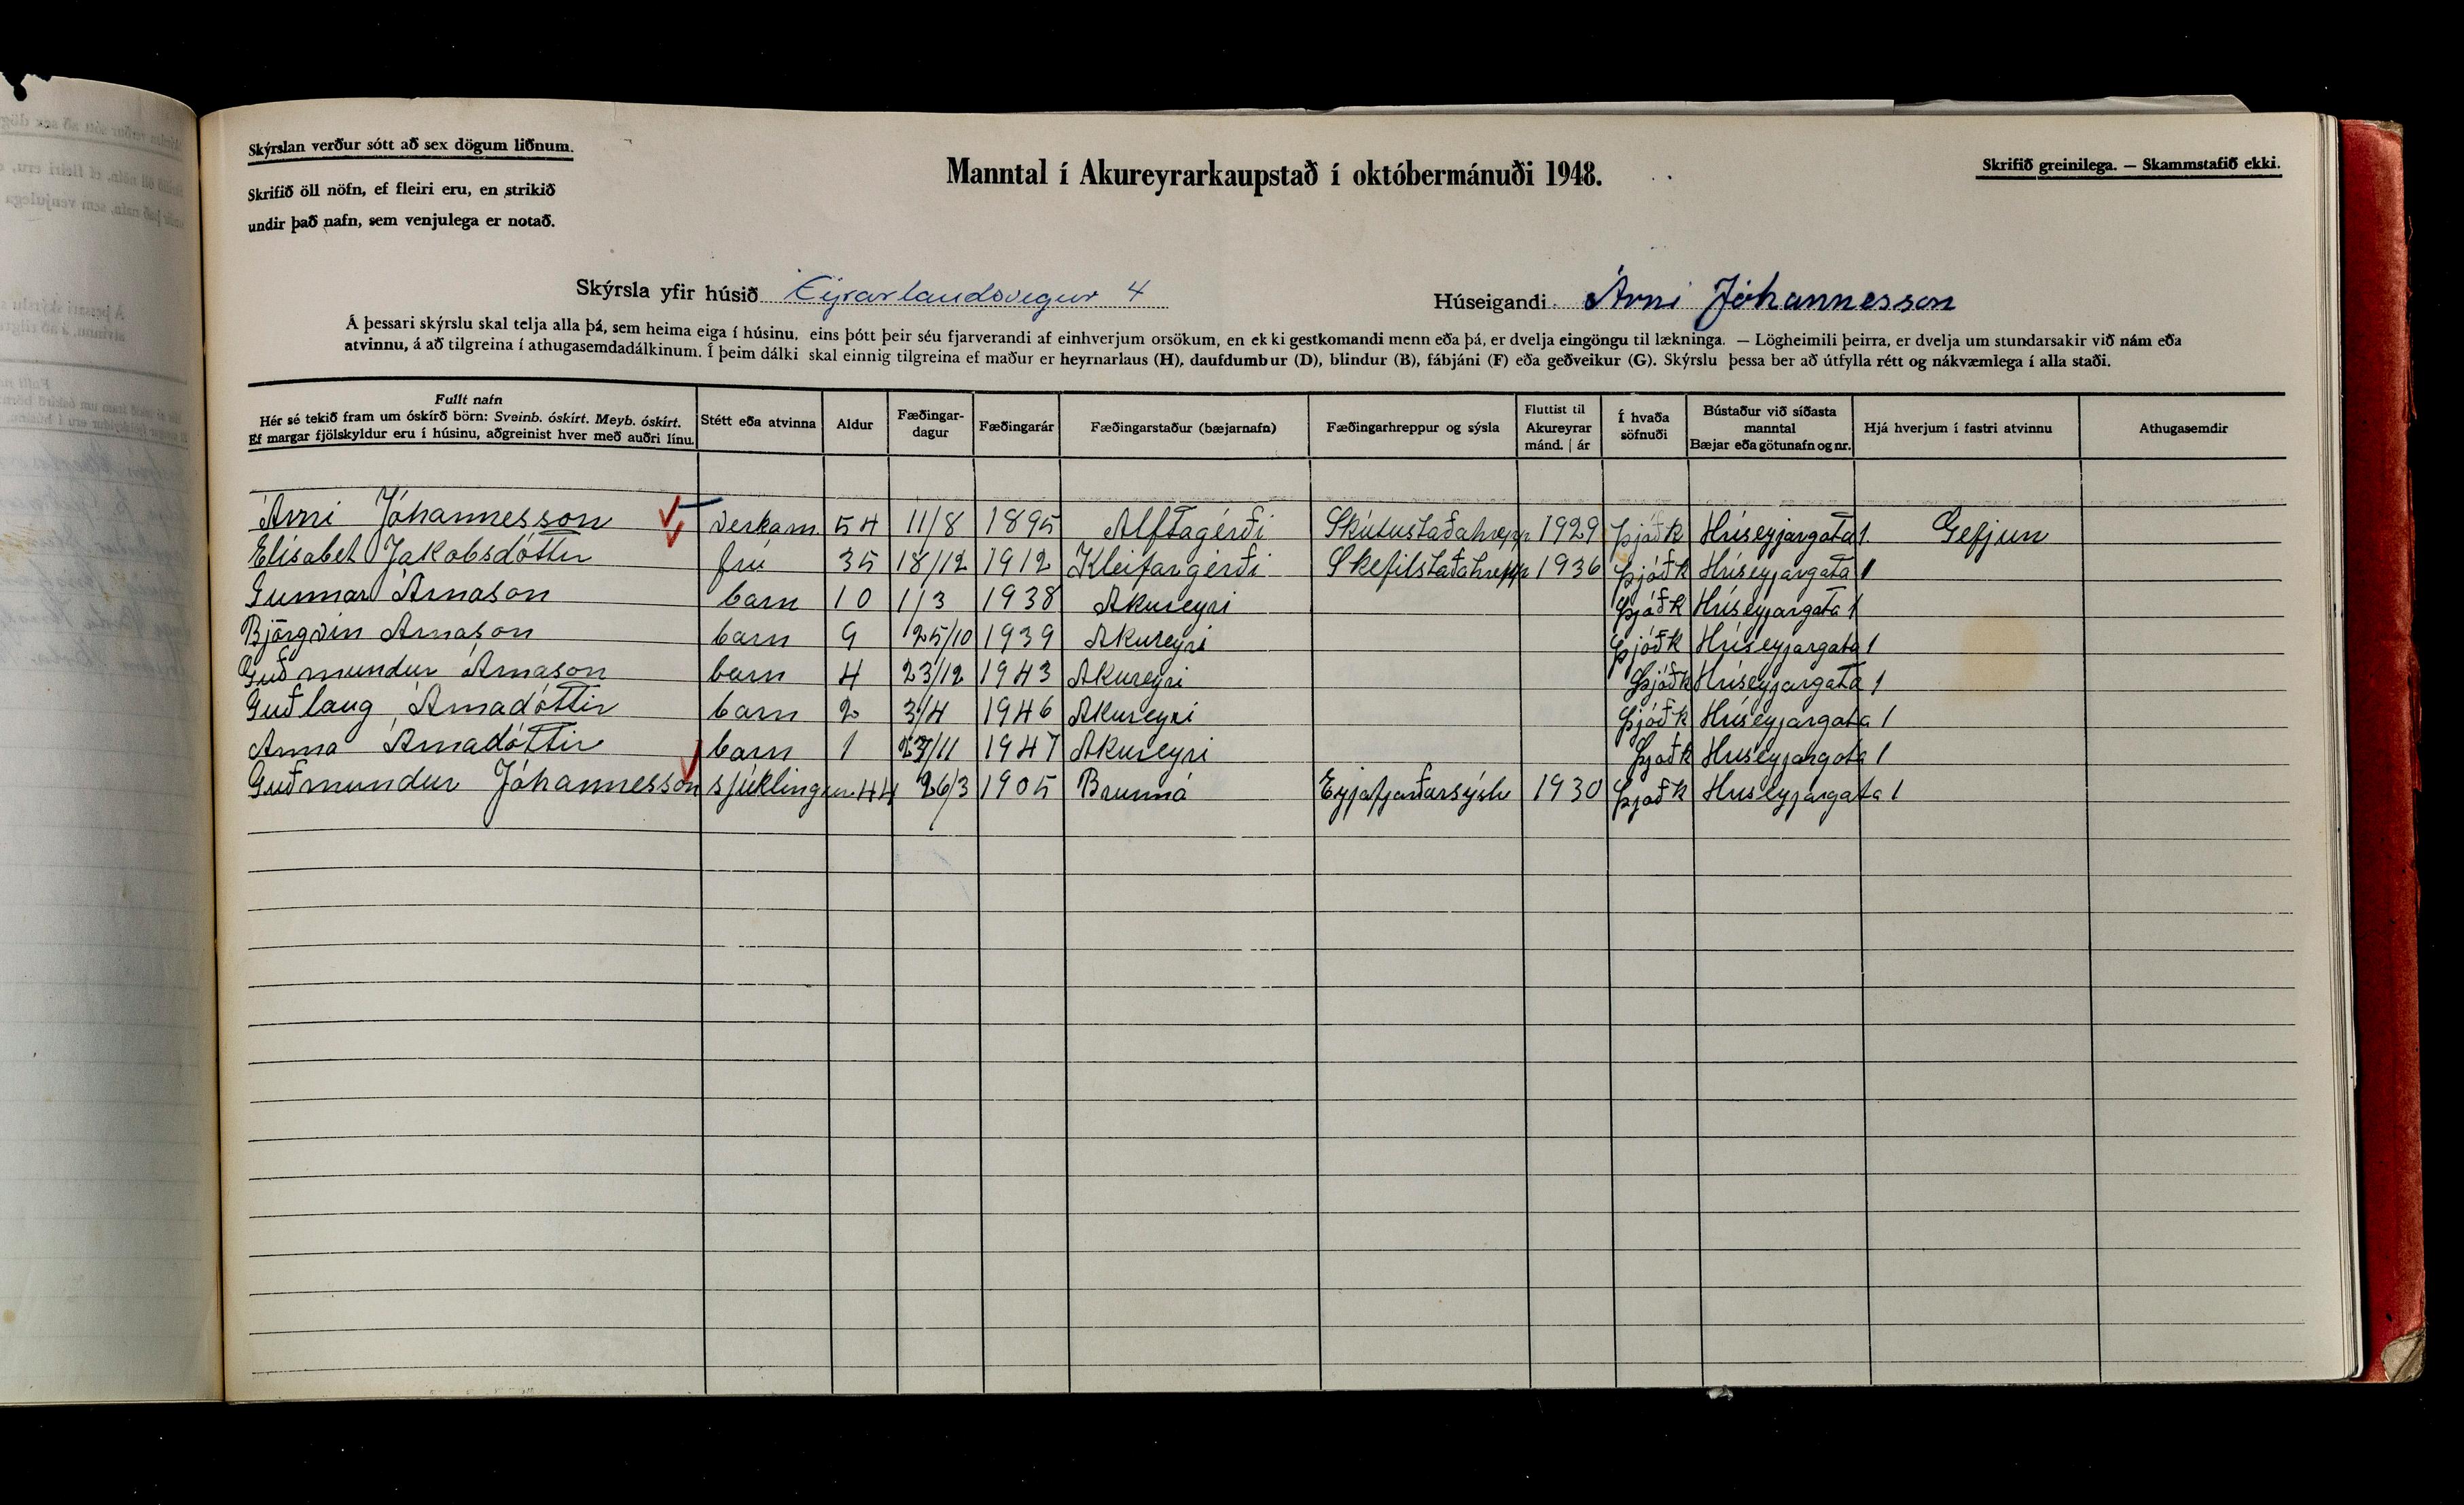 Skýrslan verður sótt að sex dögum liðnum.
Skrifið öll nöfn, ef fleiri eru, en strikið
undir það nafn, sem venjulega er notað.
Manntal í Akureyrarkaupstað í októbermánuði 1948.
Skrifið greinilega. — Skammstafið ekki.
Skýrsla yfir húsið Eyrarlandsvegur 4
Húseigandi Árni Jóhannesson
Á þessari skýrslu skal telja alla þá, sem heima eiga í húsinu, eins þótt þeir séu fjarverandi af einhverjum orsökum, en ekki gestkomandi menn eða þá, er dvelja eingöngu til lækninga. — Lögheimili þeirra, er dvelja um stundarsakir við nám eða
atvinnu, á að tilgreina í athugasemdadálkinum. Í þeim dálki skal einnig tilgreina ef maður er heyrnarlaus (H), daufdumbur (D), blindur (B), fábjáni (F) eða geðveikur (G). Skýrslu þessa ber að útfylla rétt og nákvæmlega í alla staði.
Fullt nafn
Hér sé tekið fram um óskírð börn: Sveinb. óskírt. Meyb. óskírt.
Ef margar fjölskyldur eru í húsinu, aðgreinist hver með auðri línu.
Stétt eða atvinna
Aldur
Fæðingar-
dagur
Fæðingarár
Fæðingarstaður (bæjarnafn)
Fæðingarhreppur og sýsla
Fluttist til
Akureyrar
mánd. | ár
Í hvaða
söfnuði
Bústaður við síðasta
manntal
Bæjar eða götunafn og nr.
Hjá hverjum í fastri atvinnu
Athugasemdir
Árni Jóhannesson verkam. 54 11/8 1895 Alftagérði Skútustaðahrepp 1929 Þjóðk Hríseyjargata 1 Gefjun
Elísabet Jakobsdóttir frú 35 18/12 1912 Kleifargérði Skefilstaðahrepp 1936 Þjóðk Hríseyjargata 1
Gunnar Árnason barn 10 1/3 1938 Akureyri Þjóðk Hríseyjargata 1
Björgvin Árnason barn 9 25/10 1939 Akureyri Þjóðk Hríseyjargata 1
Guðmundur Árnason barn 4 23/12 1943 Akureyri Þjóðk Hríseyjargata 1
Guðlaug Árnadóttir barn 2 3/4 1946 Akureyri Þjóðk Hríseyjargata 1
Anna Árnadóttir barn 1 1947 Akureyri Þjóðk Hríseyjargata 1
Guðmundur Jóhannesson sjúklingur 44 26/3 1905 Brunná Eyjafjarðarsýslu 1930 Þjóðk Hríseyjargata 1